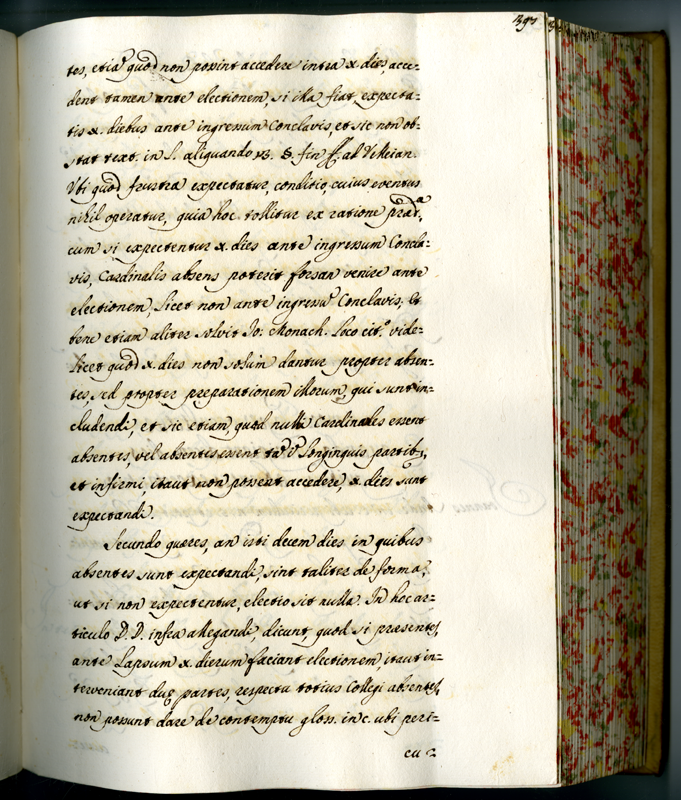 397
tes, etiã quod non possint accedere intra x. dies, acce-
dent tamen ante electionem, si illa fiat expecta-
tis x. diebus ante ingressum Conclavis, et sic non ob-
stat text. in l. aliquando § fin ff. ad Velleian.
Vbi quod frustra expectatur, conditio, cuius eventus
nihil operatur, quia hoc tollitur ex ratione præd.ª
cum si expectentur x. dies ante ingressum Concla-
vis, Cardinalis absens poterit forsan venire ante
electionem, licet non ante ingressũ Conclavis. Et
bene etiam aliter solvit Jo: Monach. loco cit.º vide-
licet quod x. dies non solum dantur propter absen-
tes, sed propter preparationem illorum, qui sunt in-
cludendi, et sic etiam, quod nulli Cardinales essent
absentes, vel absentes essent longinquis partib;
et infirmi, itaut non possent accedere, x. dies sunt
expectandi.
Secundo quæres, an isti decem dies in quibus
absentes sunt expectandi, sint taliter de forma,
ut si non expectentur, electio sit nulla. In hoc ar-
ticulo D. D. infra allegandi, dicunt, quod si præsentes,
ante Lapsum x. dierum faciant electionem, itaut in-
terveniant duę partes, respectu totius Collegi absentes,
non possunt dare de contemptu gloss. in c. ubi peri-
cu